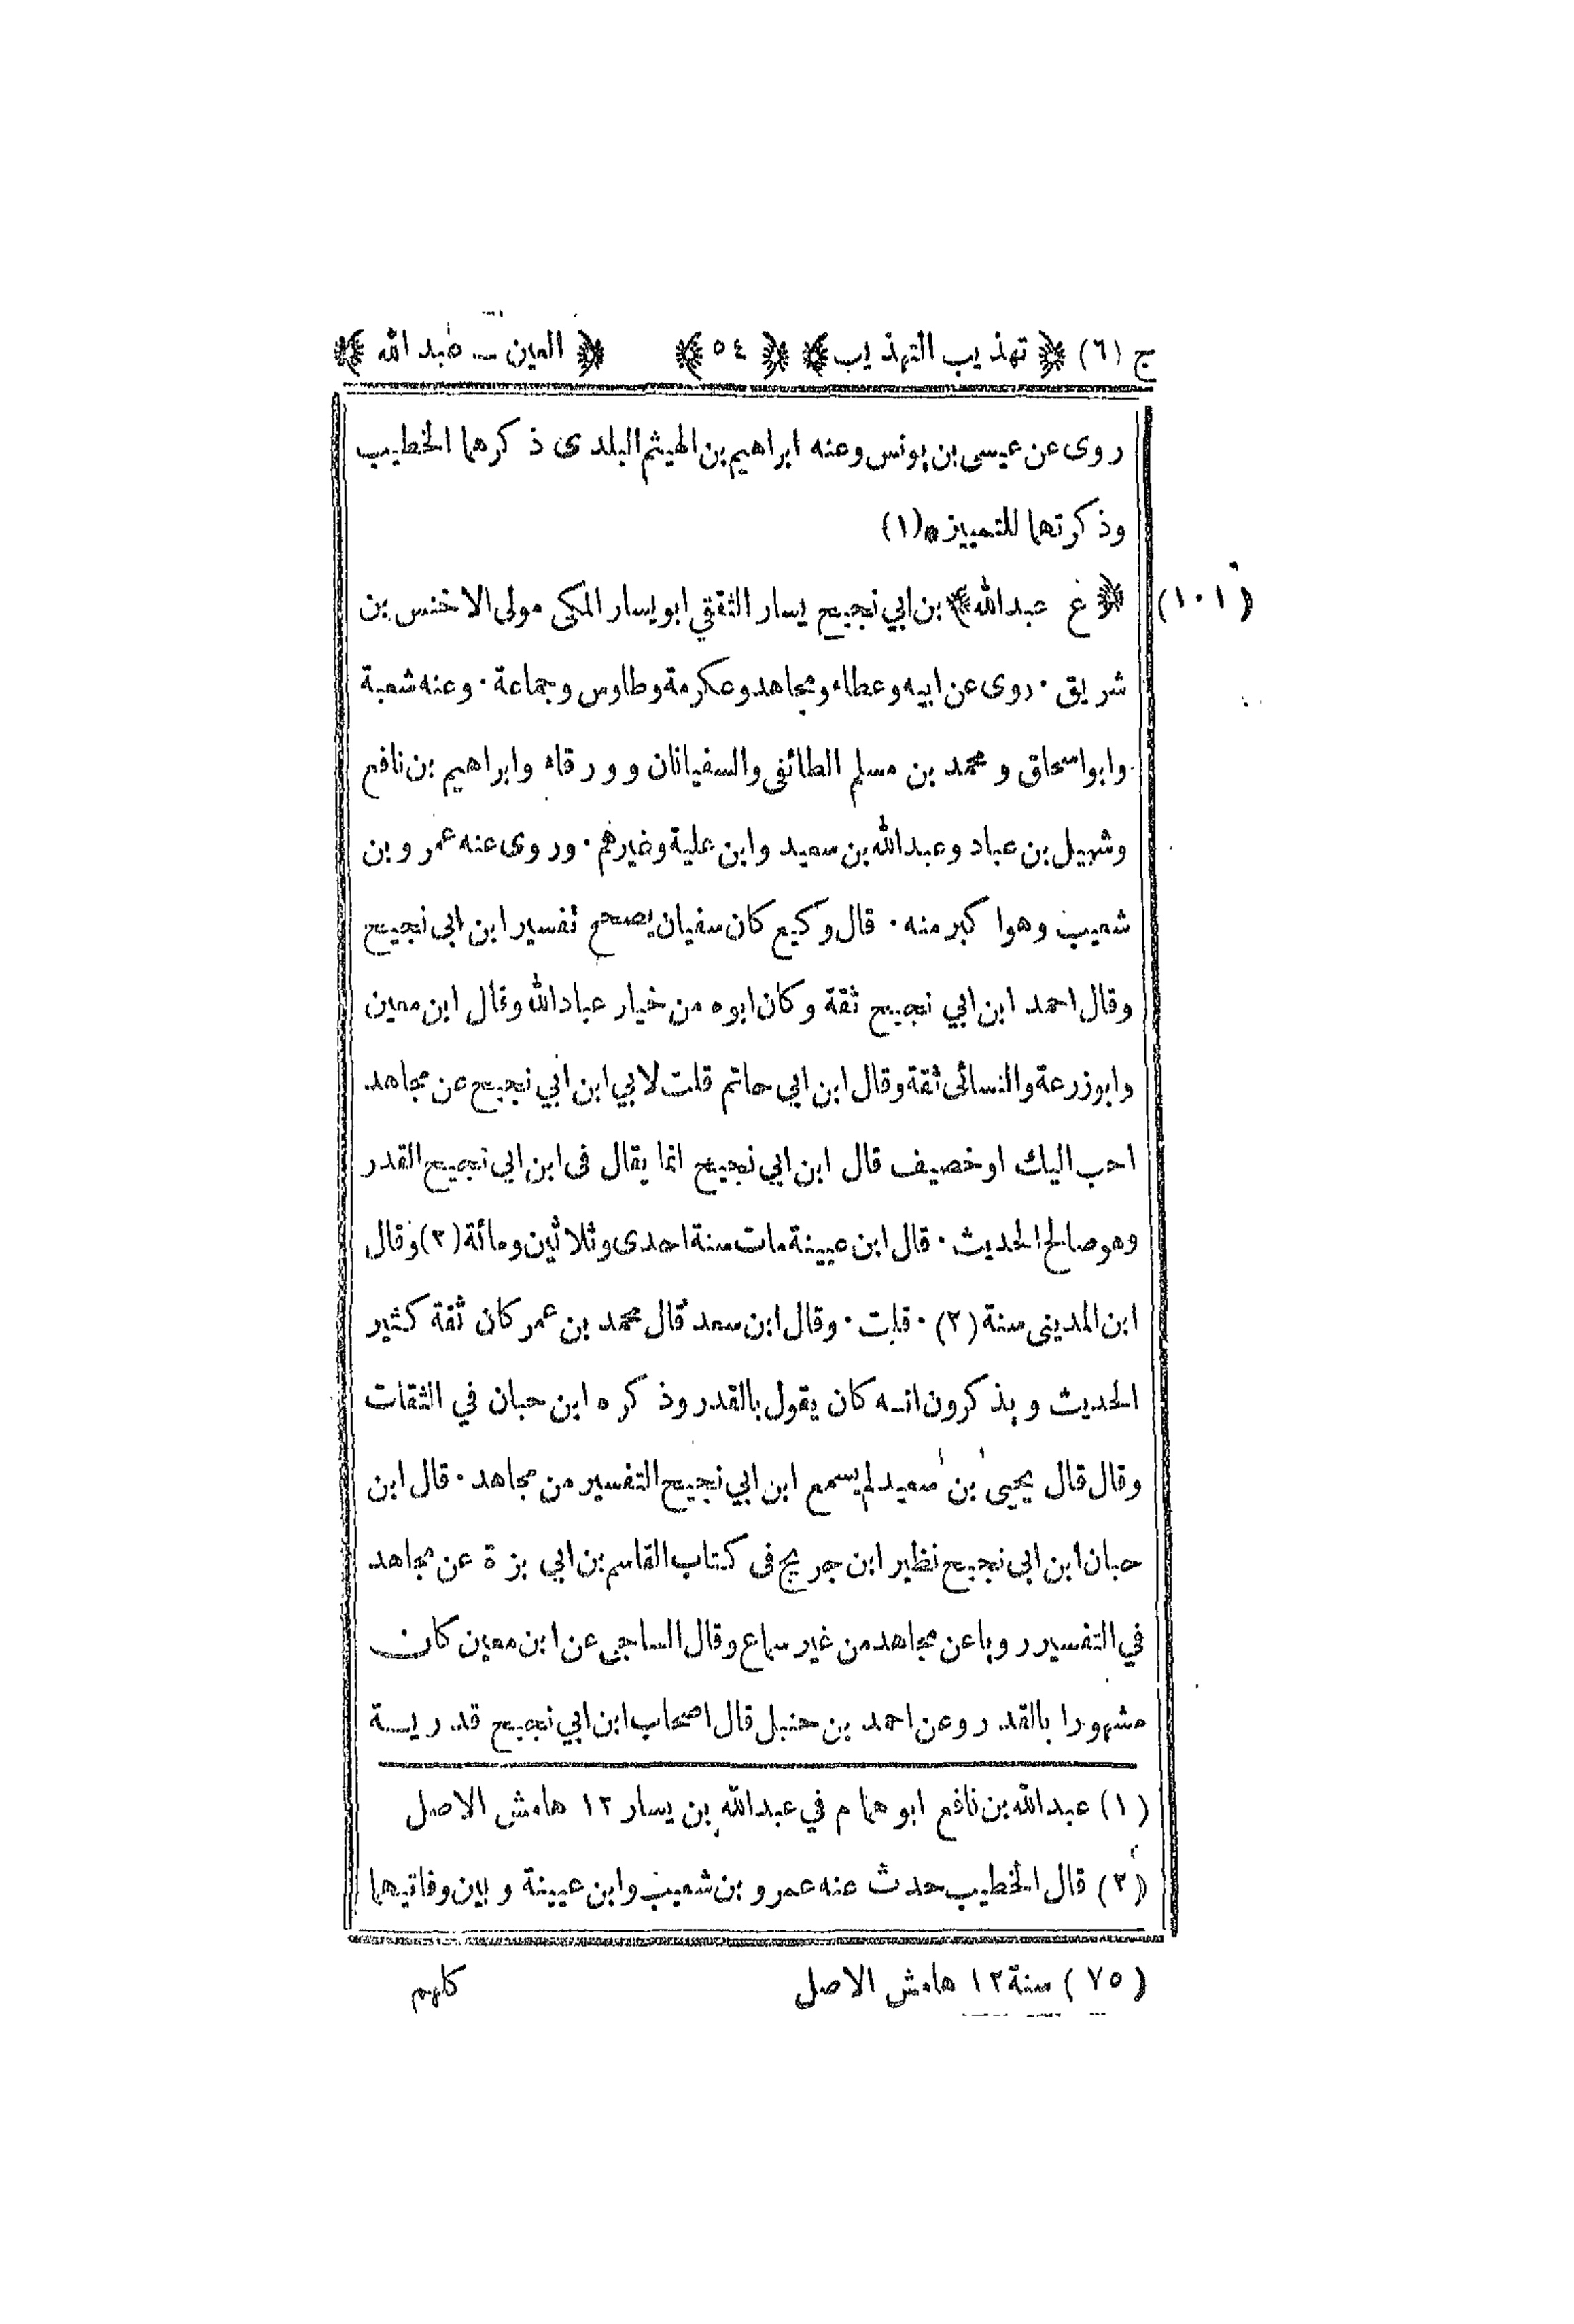 ج (٦) ﴿ تهذيب التهذيب ﴾ ﴿ ٥٤ ﴾ ﴿ العين ـ عبد الله ﴾
روى عن عيسى بن يونس وعنه ابراهيم بن الهيثم البلدى ذكرهما الخطيب
وذكرتهما للتمييز * (١)
(١٠١) ﴿ ع عبد الله ﴾ بن ابي نجيح يسار الثقفي ابو يسار المكى مولى الاخنس بن
شريق · روى عن ابيه وعطاء ومجاهد وعكرمة وطاوس وجماعة · وعنه شعبة
وابو اسحاق و محمد بن مسلم الطائفى والسفيانان و ورقاء وابراهيم بن نافع
وشهيل بن عباد وعبد الله بن سعيد وابن علية وغيرهم · وروى عنه عمرو بن
شعيب وهو اكبر منه · قال وكيع كان سفيان يصحح تفسير ابن ابى نجيح
وقال احمد ابن ابي نجيح ثقة وكان ابوه من خيار عباد الله وقال ابن معين
وابو زرعة والنسائى ثقة وقال ابن ابي حاتم قلت لابي ابن ابي نجيح عن مجاهد
احب اليك او خصيف قال ابن ابي نجيح انما يقال فى ابن ابي نجيح القدر
وهو صالح الحديث · قال ابن عيينة مات سنة احدى وثلاثين ومائة (٢) وقال
ابن المدينى سنة (٢) · قلت · وقال ابن سعد قال محمد بن عمر كان ثقة كثير
الحديث ويذكرون انه كان يقول بالقدر وذكره ابن حبان في الثقات
وقال قال يحيى بن سعيد لم يسمع ابن ابي نجيح التفسير من مجاهد · قال ابن
حبان ابن ابي نجيح نظير ابن جريج فى كتاب القاسم بن ابي بزة عن مجاهد
في التفسير رويا عن مجاهد من غير سماع وقال الساجى عن ابن معين كان
مشهورا بالقدر وعن احمد بن حنبل قال اصحاب ابن ابي نجيح قدرية
(١) عبد الله بن نافع ابو همام في عبد الله بن يسار ١٢ هامش الاصل
(٢) قال الخطيب حدث عنه عمرو بن شعيب وابن عيينة و بين وفاتيهما
(٧٥) سنة ١٢ هامش الاصل كلهم